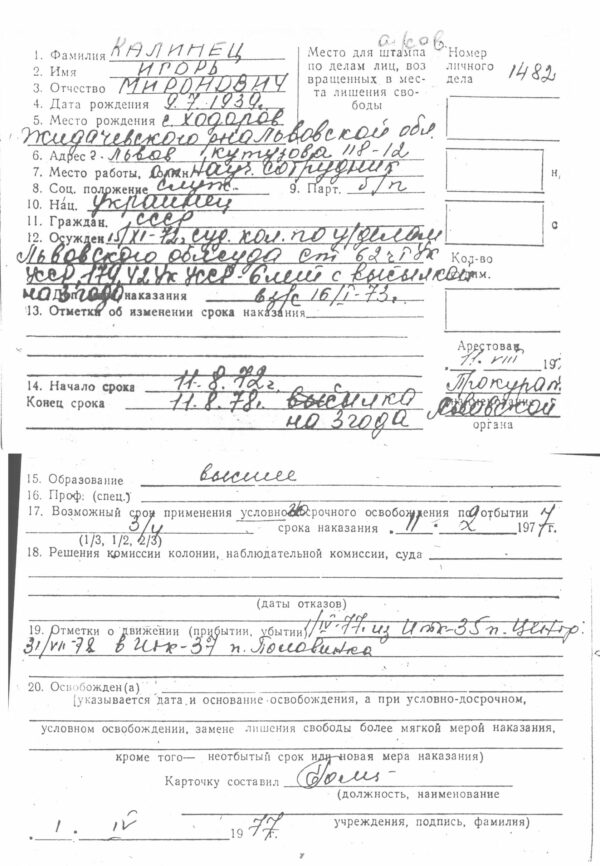 1. Фамилия КАЛИНЕЦ
2. Имя ИГОРЬ
3. Отчество МИРОНОВИЧ
4. Дата рождения 9.7.1939г.
5. Место рождения с. Ходоров
Жидачевского р-на Львовской обл
6. Адрес г. Львов Кутузова 118-12
7. Место работы, науч. сотрудник
8. Соц. положение служ. 9. Парт. б/п
10. Нац. украинец
11. Граждан. СССР
12. Осужден 15/XI-72г. суд. кол. по у/делам
Львовского облсуда ст 62 ч I УК
УССР. 6 лет с высылкой
на 3 года наказания 16/I-73г.
13. Отметки об изменении срока наказания
14. Начало срока 11.8.72г.
Конец срока 11.8.78г. высылка
на 3 года
Место для штампа
по делам лиц, воз
вращенных в мес-
та лишения сво-
боды
Номер
личного
дела 1482
н,
с
Кол-во
Арестован
11. VIII 19
Прокурат.
Львовской
органа
15. Образование высшее
16. Проф: (спец.)
17. Возможный срок применения условно-досрочного освобождения по отбытии
3/4 срока наказания 11 · 2 1977г.
(1/3, 1/2, 2/3)
18. Решения комиссии колонии, наблюдательной комиссии, суда
(даты отказов)
19. Отметки о движении (прибытии, убытии) 1/IV-77. из ИТК-35 п. Центр.
31/VII-78 в ИТК-37 п. Половинка
20. Освобожден(а)
(указывается дата и основание освобождения, а при условно-досрочном,
условном освобождении, замене лишения свободы более мягкой мерой наказания,
кроме того— неотбытый срок или новая мера наказания)
Карточку составил
(должность, наименование
1. IV 1977г. учреждения, подпись, фамилия)